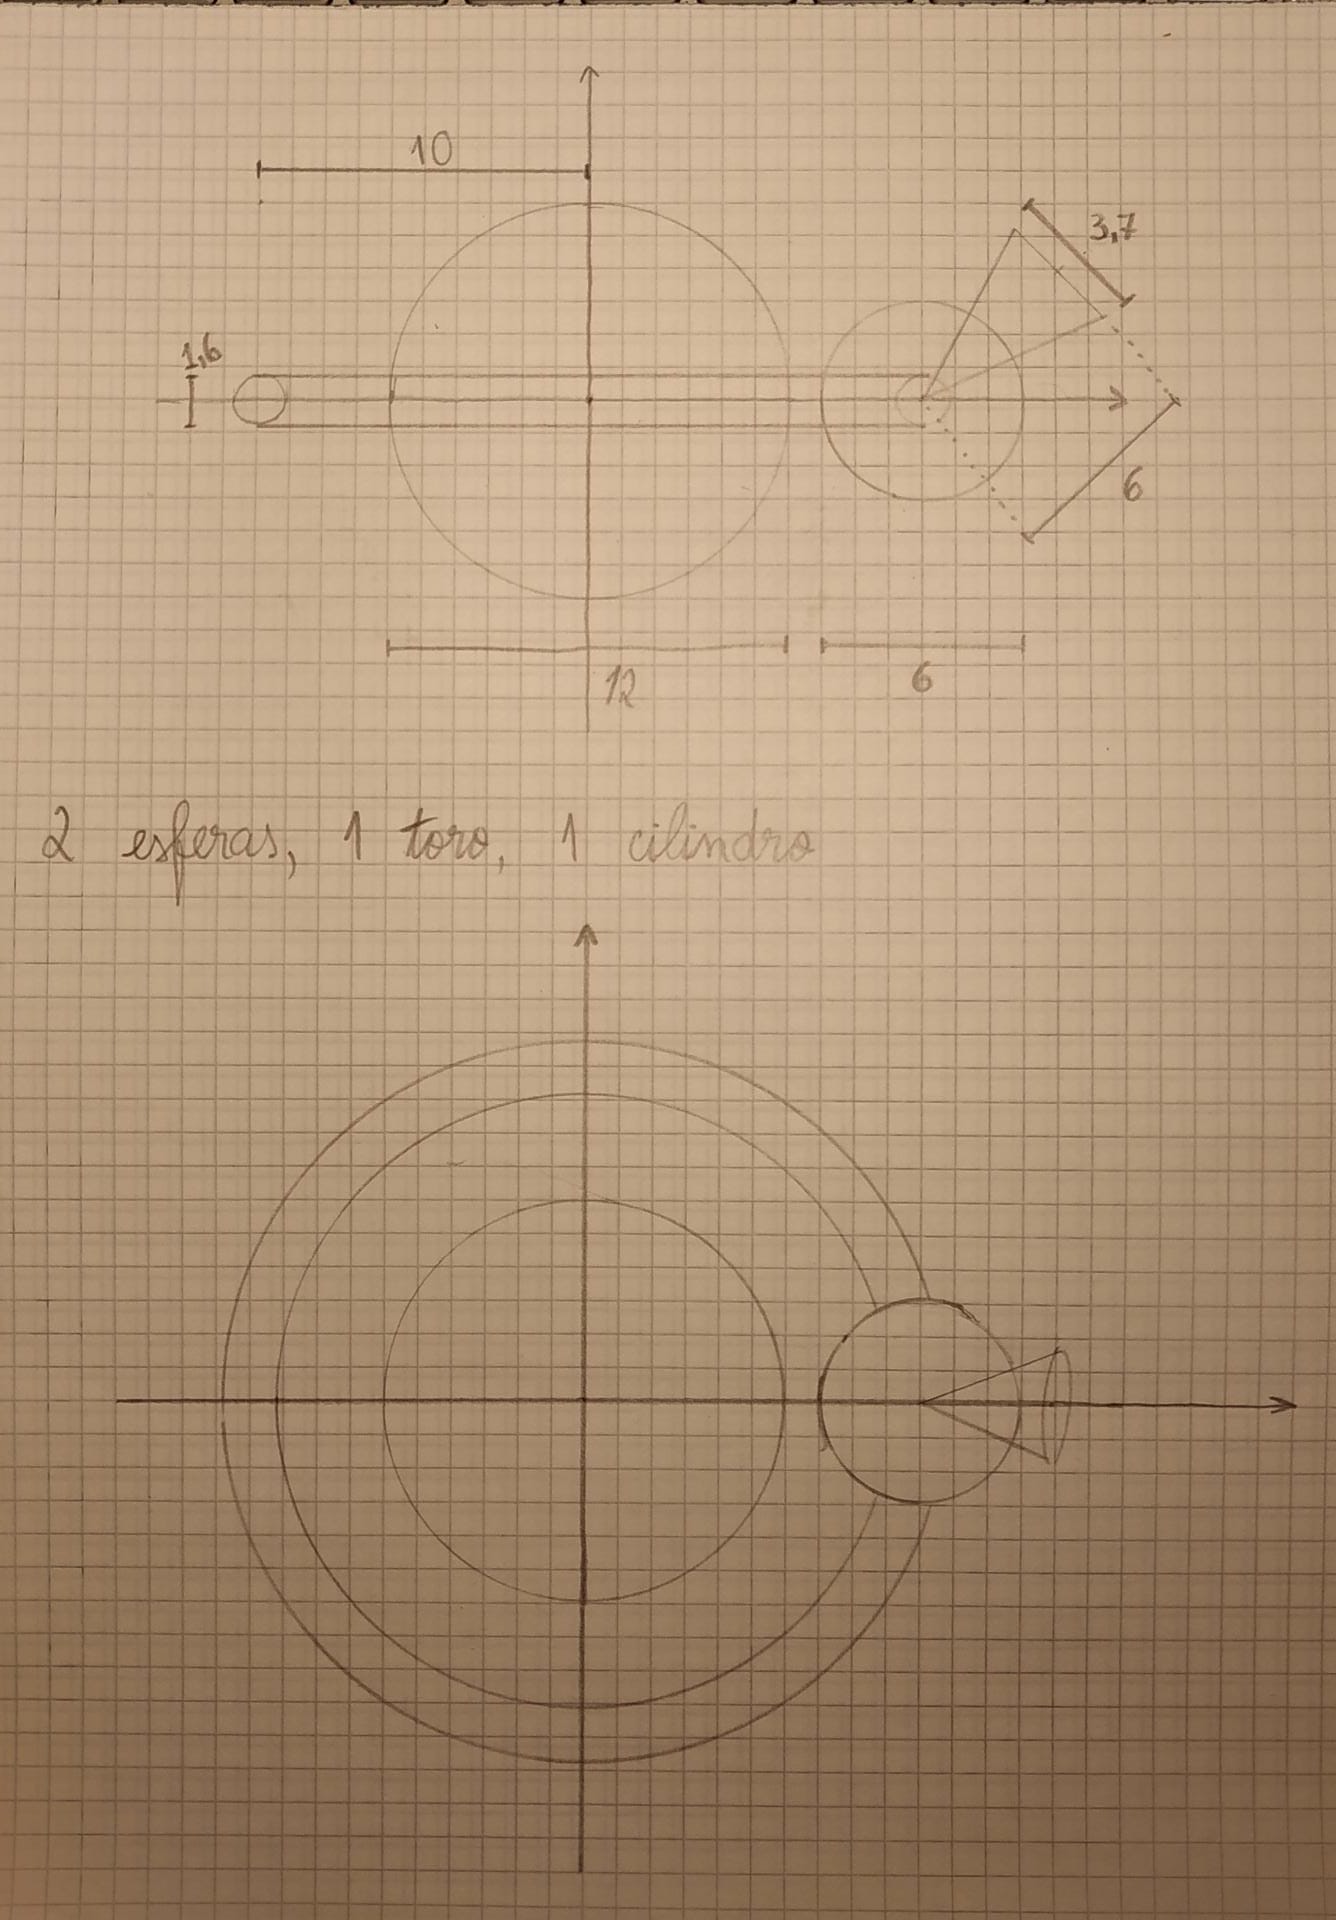 10
3,7
1,6
6
12
6
2 esferas, 1 toro, 1 cilindro